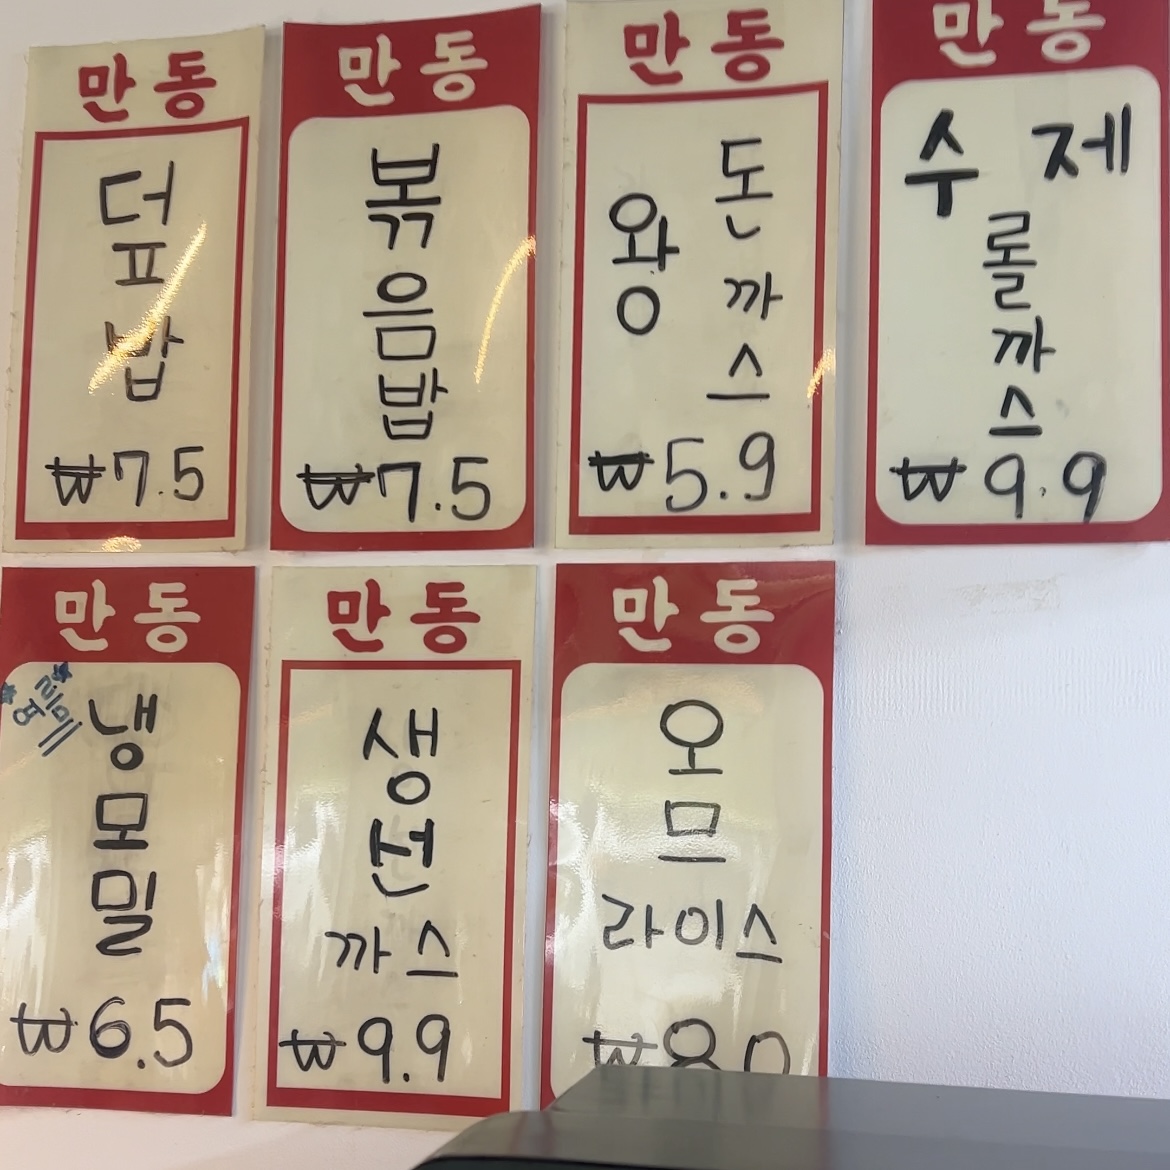 만동
덮밥
₩7.5
만동
볶음밥
₩7.5
만동
왕
돈까스
₩5.9
만동
수제
롤까스
₩9.9
만동
냉모밀
₩6.5
만동
생선
까스
₩9.9
만동
오므
라이스
₩8.0